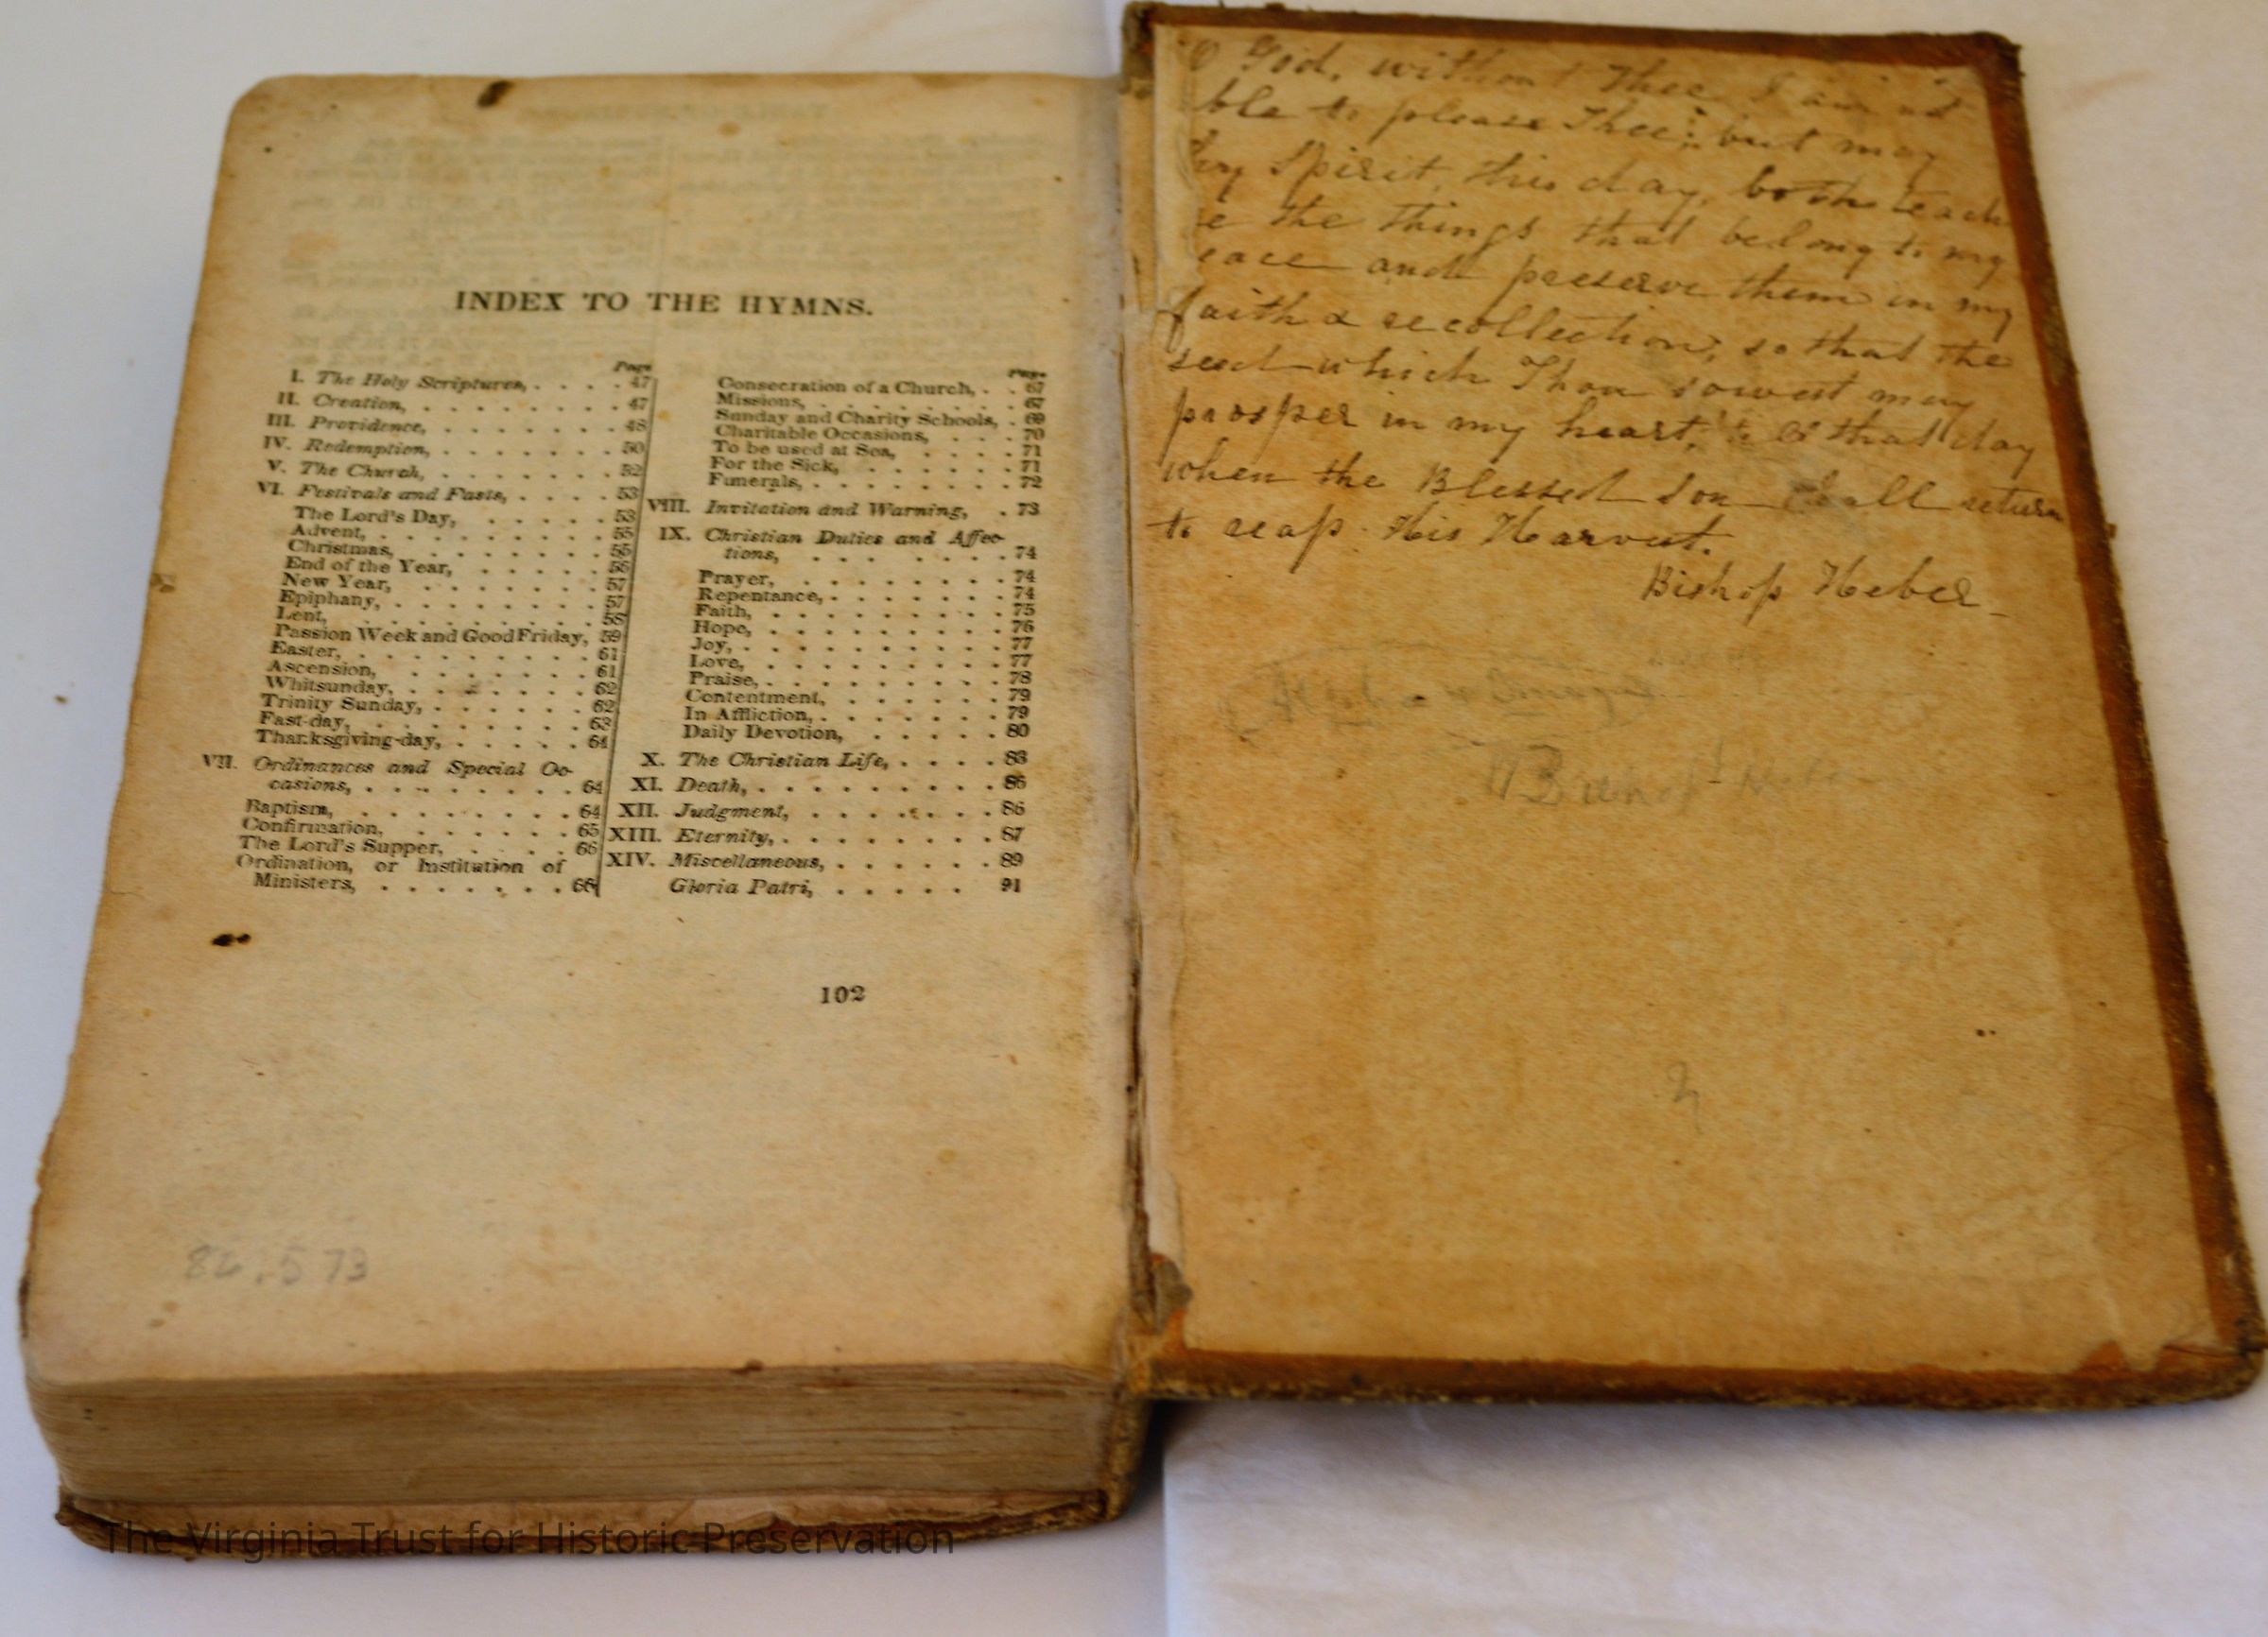 INDEX TO THE HYMNS.
Page
I. The Holy Scriptures, . . . . 47
II. Creation, . . . . . . . 47
III. Providence, . . . . . . . 48
IV. Redemption, . . . . . . . 50
V. The Church, . . . . . . . 52
VI. Festivals and Fasts, . . . . 53
The Lord's Day, . . . . . 53
Advent, . . . . . . . . 55
Christmas, . . . . . . . 55
End of the Year, . . . . . 56
New Year, . . . . . . . 57
Epiphany, . . . . . . . 57
Lent, . . . . . . . . 58
Passion Week and Good Friday, 59
Easter, . . . . . . . . 61
Ascension, . . . . . . . 61
Whitsunday, . . . . . . . 62
Trinity Sunday, . . . . . . 62
Fast-day, . . . . . . . 63
Thanksgiving-day, . . . . . 64
VII. Ordinances and Special Oc-
casions, . . . . . . . . 64
Baptism, . . . . . . . . 64
Confirmation, . . . . . . 65
The Lord's Supper, . . . . 66
Ordination, or Institution of
Ministers, . . . . . . . 66
Page
Consecration of a Church, . . 67
Missions, . . . . . . . 67
Sunday and Charity Schools, . 69
Charitable Occasions, . . . 70
To be used at Sea, . . . . 71
For the Sick, . . . . . . 71
Funerals, . . . . . . . 72
VIII. Invitation and Warning, . 73
IX. Christian Duties and Affec-
tions, . . . . . . . 74
Prayer, . . . . . . . 74
Repentance, . . . . . . 74
Faith, . . . . . . . . 75
Hope, . . . . . . . . 76
Joy, . . . . . . . . . 77
Love, . . . . . . . . 77
Praise, . . . . . . . . 78
Contentment, . . . . . . 79
In Affliction, . . . . . . 79
Daily Devotion, . . . . . 80
X. The Christian Life, . . . . 83
XI. Death, . . . . . . . . 85
XII. Judgment, . . . . . . . 86
XIII. Eternity, . . . . . . . 87
XIV. Miscellaneous, . . . . . . 89
Gloria Patri, . . . . . 91
102
82.573
O God, without Thee I am not
ble to please Thee; but may
hy Spirit, this day, both teach
e the things that belong to my
eace and preserve them in my
faith & recollection, so that the
seed which Thou sowest may
prosper in my heart, till that day
when the Blessed Son shall return
to reap His Harvest.
Bishop Heber
Bishop
2
The Virginia Trust for Historic Preservation